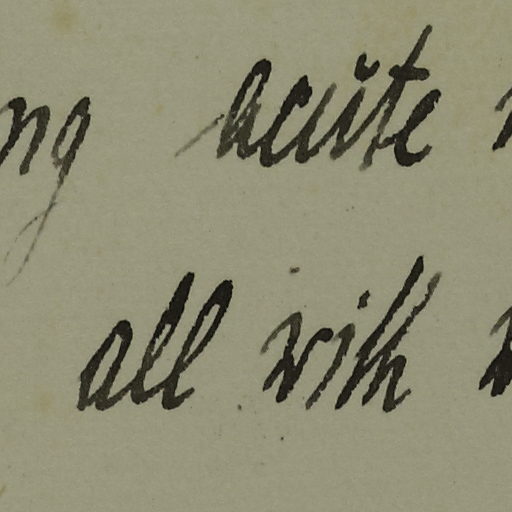 ng acute
all with